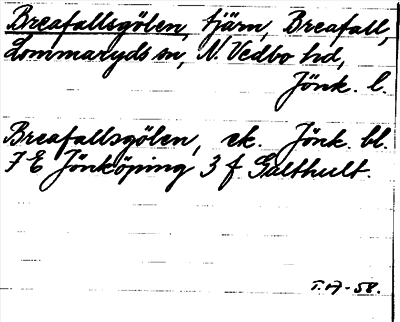 Breafallsgölen, tjärn, Breafall,
Lommaryds sn, N. Vedbo hd,
Jönk. l.
Breafallsgölen, ek. Jönk. bl.
7 E Jönköping 3 f Galthult.
T.H-58.